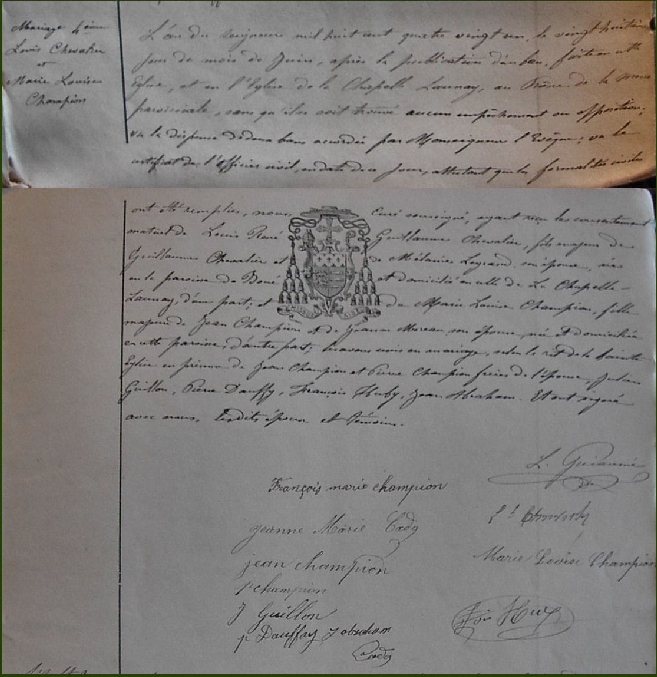 Mariage
Louis Chevalier
et
Marie Louise
Champion
L'an du seigneur mil huit cent quatre vingt un, le vingt huitième
jour du mois de Juin, après la publication d'un ban, faite en cette
Eglise, et en l'Eglise de La Chapelle Launay, au Prône de la messe
paroissiale, sans qu'il se soit trouvé aucun empêchement ou opposition;
vu la dispense de deux bans accordée par Monseigneur l'Evêque; vu le
certificat de l'officier civil, en date de ce jour, attestant que les formalités civiles
ont été remplies, nous, Curé soussigné, ayant reçu les consentements
mutuels de Louis René Guillaume Chevalier, fils majeur de
Guillaume Chevalier et de Mélanie Legrand, son épouse, né
en la paroisse de et domicilié en celle de La Chapelle-
Launay, d'une part, et de Marie Louise Champion, fille
majeure de Jean Champion et de Jeanne Moreau son épouse, née et domiciliée
en cette paroisse, d'autre part; les avons unis en mariage, selon le rit de la Sainte
Eglise en présence de Jean Champion et Pierre Champion frères de l'épouse, Julien
Guillon, Pierre Dauffy, François Huby, Jean Abraham. Et ont signé
avec nous, lesdits époux et témoins.
François marie champion
L.
jeanne Marie
jean champion
Marie Louise Champion
P champion
J Guillon
p Dauffay J abraham